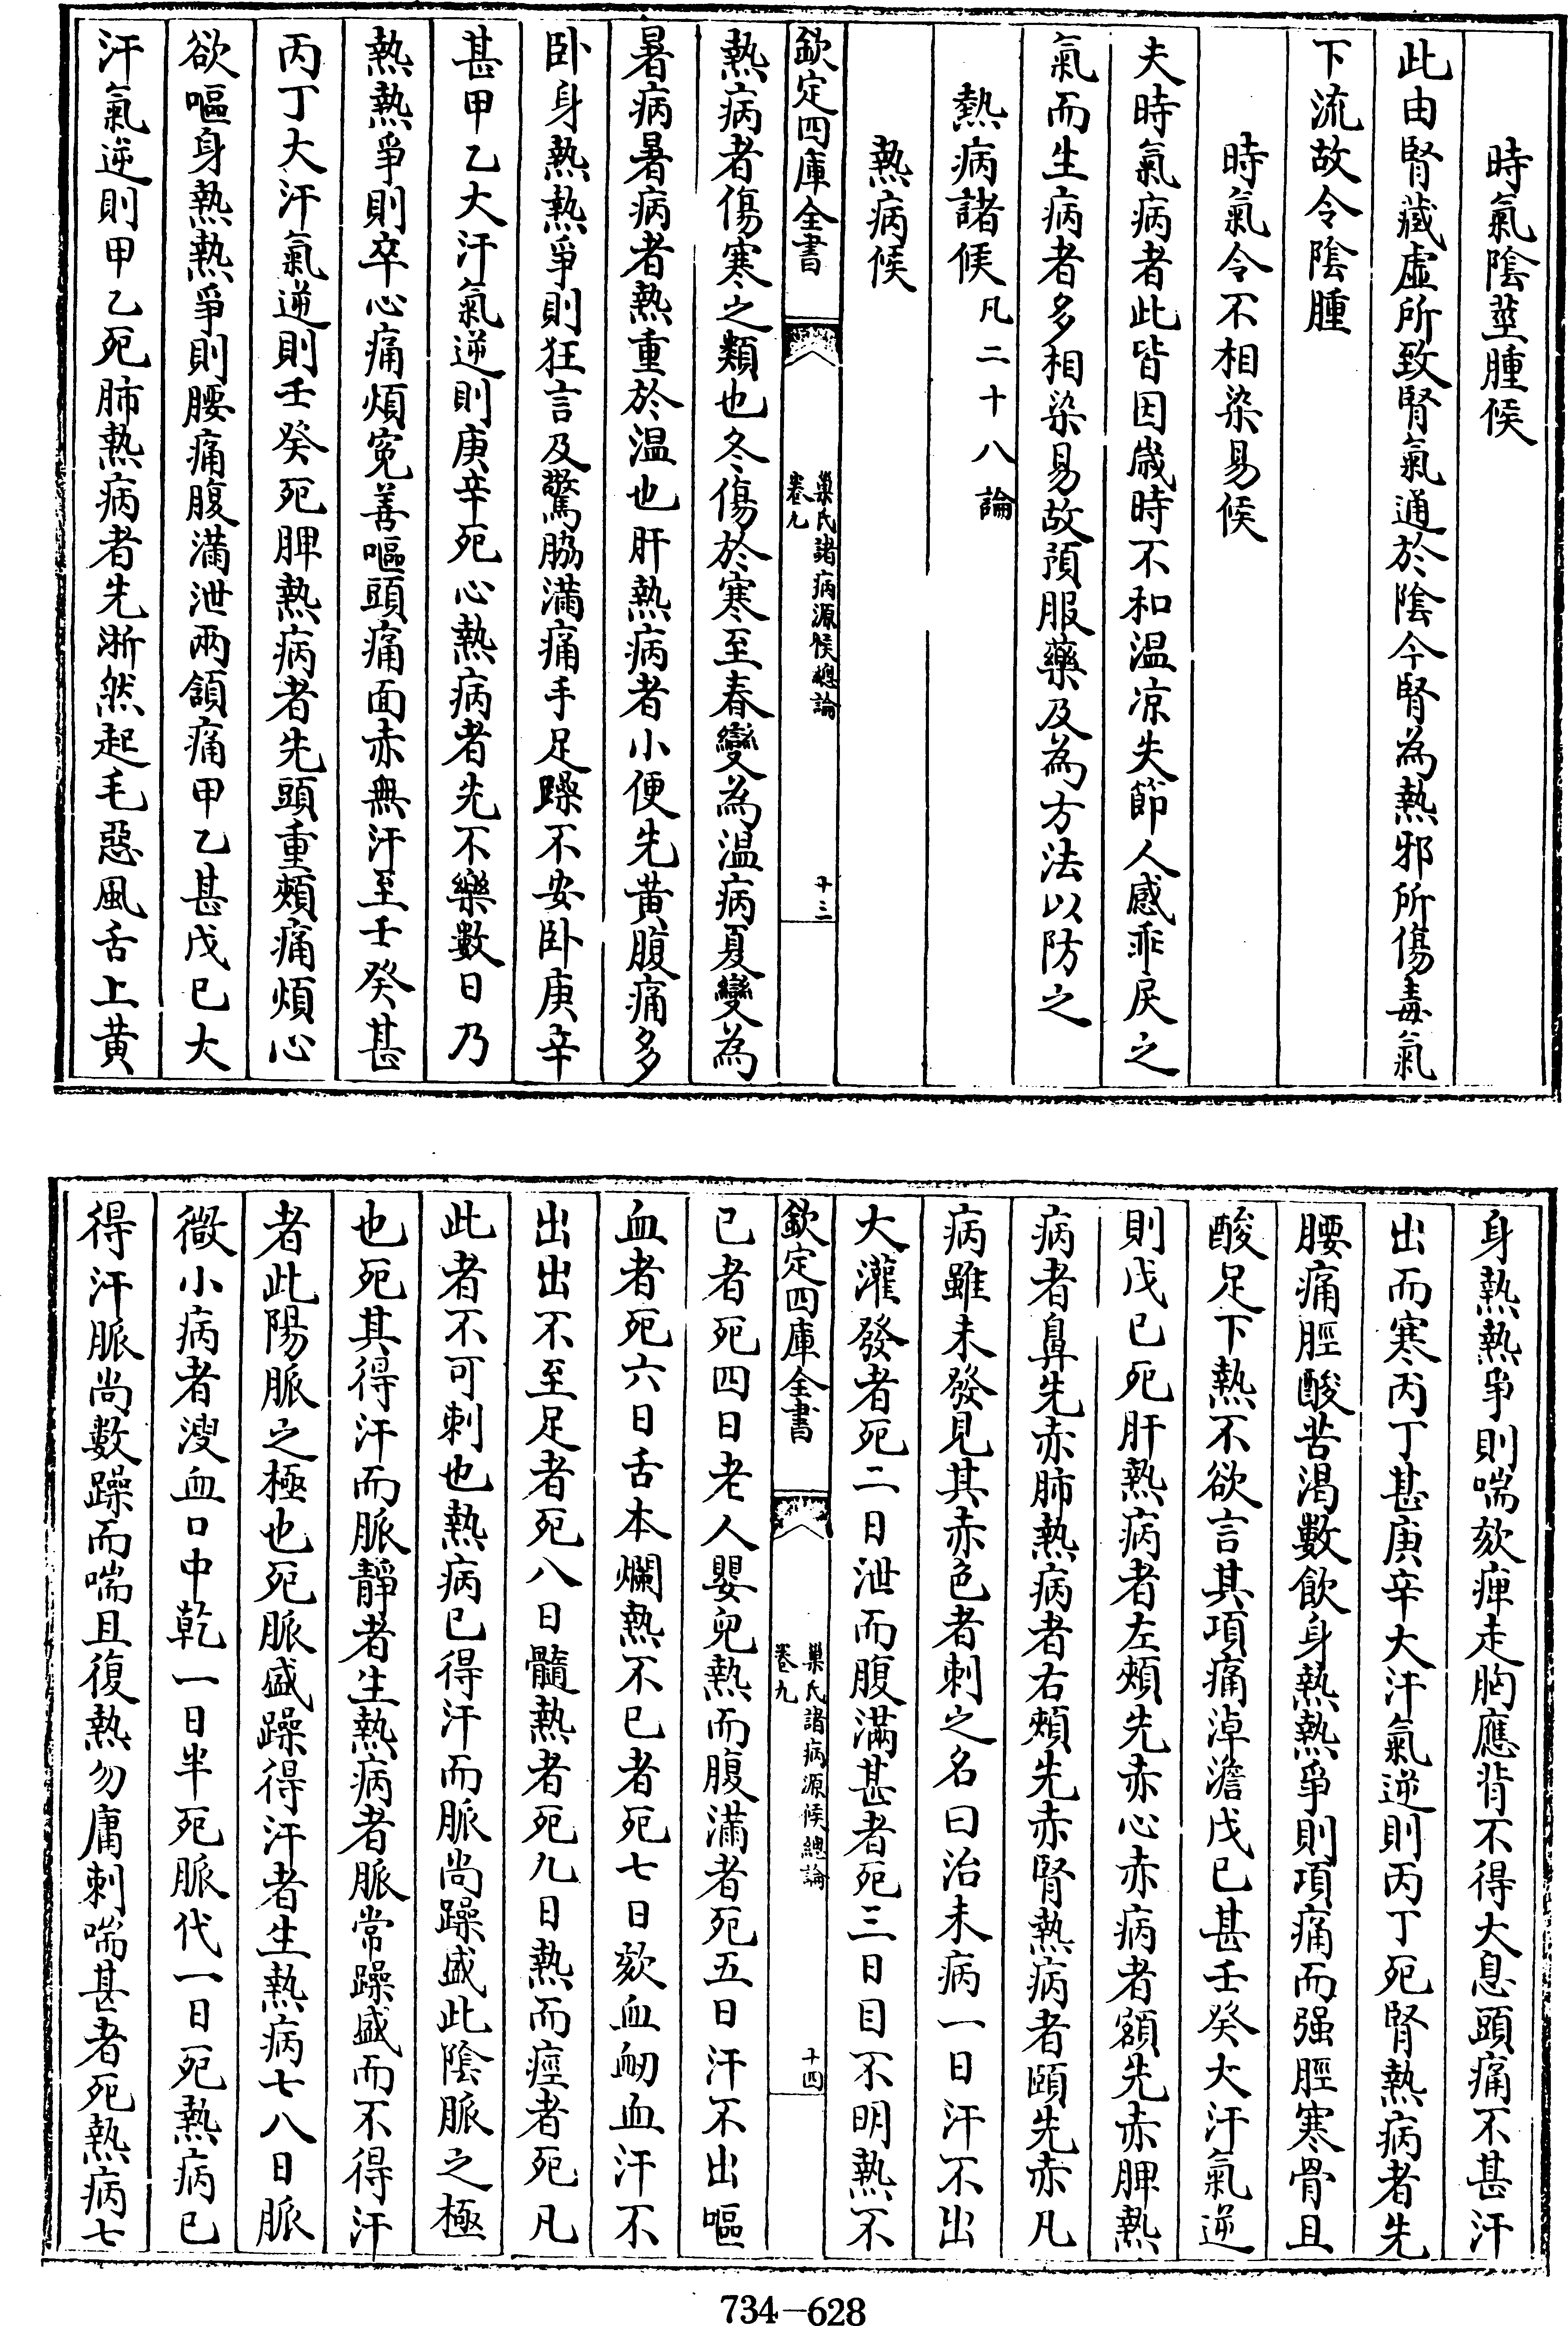 時氣陰莖腫候
此由腎藏虛所致腎氣通於陰今腎為熱邪所傷毒氣
下流故令陰腫
時氣令不相染易候
夫時氣病者此皆因歲時不和温凉失節人感乖戾之
氣而生病者多相染易故預服藥及為方法以防之
熱病諸候凡二十八論
熱病候
欽定四庫全書
巢氏諸病源候總論
卷九
十三
熱病者傷寒之類也冬傷於寒至春變為温病夏變為
暑病暑病者熱重於温也肝熱病者小便先黄腹痛多
卧身熱熱爭則狂言及驚脇滿痛手足躁不安卧庚辛
甚甲乙大汗氣逆則庚辛死心熱病者先不樂數日乃
熱熱爭則卒心痛煩寃善嘔頭痛面赤無汗至壬癸甚
丙丁大汗氣逆則壬癸死脾熱病者先頭重頰痛煩心
欲嘔身熱熱爭則腰痛腹滿泄兩頷痛甲乙甚戊己大
汗氣逆則甲乙死肺熱病者先淅然起毛惡風舌上黄
身熱熱爭則喘欬痺走胸應背不得大息頭痛不甚汗
出而寒丙丁甚庚辛大汗氣逆則丙丁死腎熱病者先
腰痛脛酸苦渴數飲身熱熱爭則項痛而强脛寒骨且
酸足下熱不欲言其項痛淖澹戊己甚壬癸大汗氣逆
則戊己死肝熱病者左頰先赤心赤病者額先赤脾熱
病者鼻先赤肺熱病者右頰先赤腎熱病者頤先赤凡
病雖未發見其赤色者刺之名曰治未病一日汗不出
大灌發者死二日泄而腹滿甚者死三日目不明熱不
欽定四庫全書
巢氏諸病源候總論
卷九
十四
已者死四日老人嬰兒熱而腹滿者死五日汗不出嘔
血者死六日舌本爛熱不已者死七日欬血衂血汗不
出出不至足者死八日髓熱者死九日熱而痙者死凡
此者不可刺也熱病已得汗而脈尚躁盛此陰脈之極
也死其得汗而脈靜者生熱病者脈常躁盛而不得汗
者此陽脈之極也死脈盛躁得汗者生熱病七八日脈
微小病者溲血口中乾一日半死脈代一日死熱病已
得汗脈尚數躁而喘且復熱勿庸刺喘甚者死熱病七
734-628